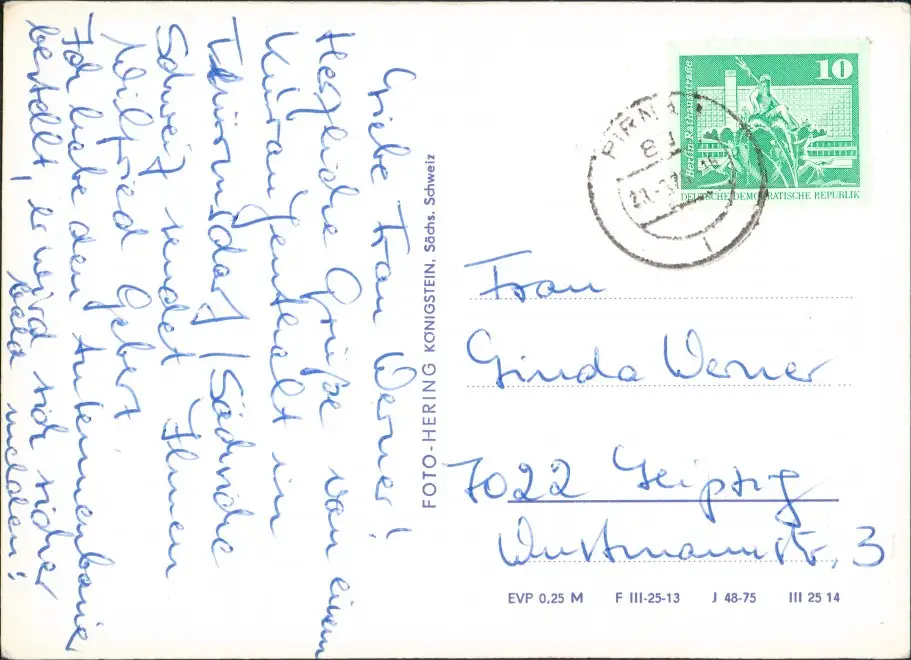 Liebe Frau Werner!
Herzliche Grüße von einem
Kuraufenthalt in
Thürmsdorf / Sächsische
Schweiz sendet Ihnen
Wilfried Gebert
Ich habe den Antennenbauer
bestellt, er wird sich sicher
bald melden!
FOTO-HERING KÖNIGSTEIN, Sächs. Schweiz
10
Berlin-Rathausstraße
DEUTSCHE DEMOKRATISCHE REPUBLIK
PIRNA
Frau
Werner
7022 Leipzig
3
EVP 0,25 M F III-25-13 J 48-75 III 25 14